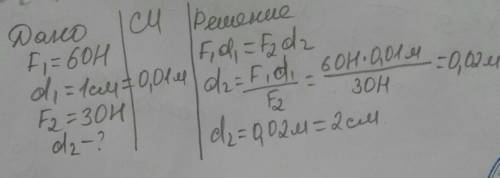 Дано
F₁=60Н
d₁=1см=0,01м
F₂=30Н
d₂-?
СИ
Решение
F₁d₁=F₂d₂
d₂=F₁d₁/F₂=60Н·0,01м/30Н=0,02м
d₂=0,02м=2см